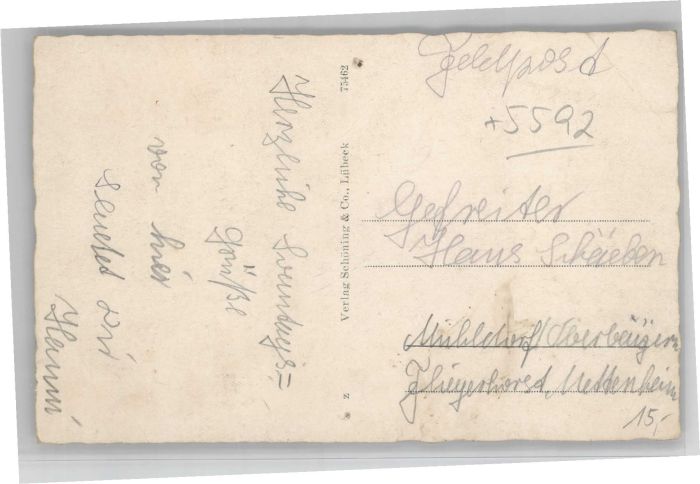 Herzliche Sonntags=
Grüße
von hier
sendet Dir
Hanni
Verlag Schöning & Co., Lübeck
75462
z
Feldpost
+5592
Gefreiter
Hans
Mühldorf/Oberbayern
Fliegerhorst, Mettenheim
15,-